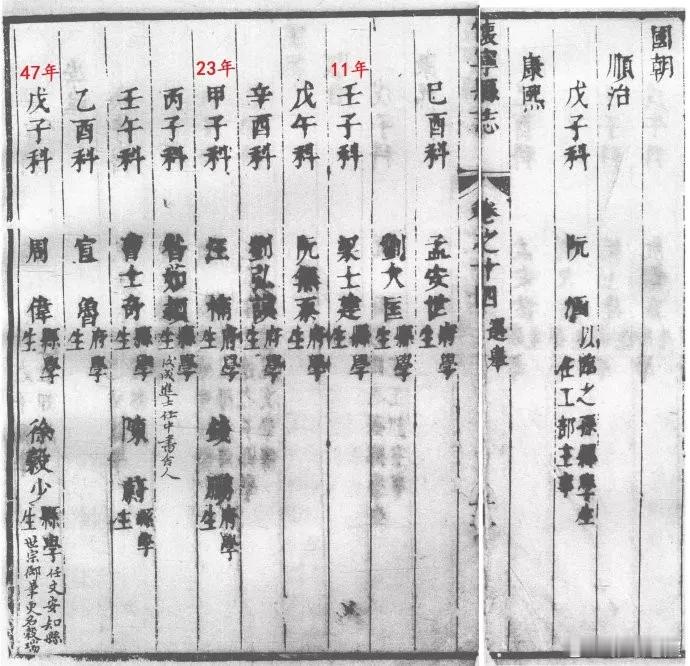 國朝
順治
戊子科 阮 以臨之孫縣學生任工部主事
康熙
懷寧縣志 卷之十四 選舉
己酉科 孟安世 府學生
劉大匡 縣學生
11年
壬子科 梁士建 縣學生
戊午科 阮無忝 府學生
辛酉科 劉弘謨 府學生
23年
甲子科 汪楠 府學生 錢鵬 府學生
丙子科 昝茹穎 戊戌進士任中書舍人
壬午科 曹士奇 縣學生 陳蔚 縣學生
乙酉科 宣魯 府學生
47年
戊子科 周偉 縣學生 徐毅少 縣學生 任文安知縣 世宗御筆更名穀瑞